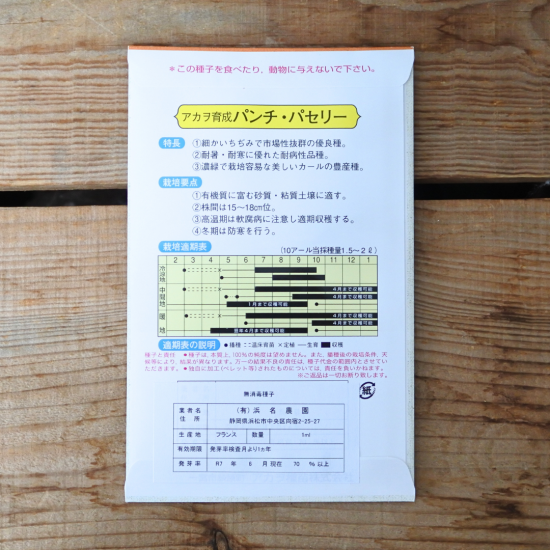 ＊この種子を食べたり、動物に与えないで下さい。
アカヲ育成パンチ・パセリー
特長 ①細かいちぢみで市場性抜群の優良種。
②耐暑・耐寒に優れた耐病性品種。
③濃緑で栽培容易な美しいカールの豊産種。
栽培要点
①有機質に富む砂質・粘質土壌に適す。
②株間は15〜18cm位。
③高温期は軟腐病に注意し適期収穫する。
④冬期は防寒を行う。
栽培適期表 (10アール当採種量1.5〜2ℓ)
2 3 4 5 6 7 8 9 10 11 12 1
冷涼地
中間地 4月まで収穫可能
4月まで収穫可能
1月まで収穫可能
暖地 4月まで収穫可能
4月まで収穫可能
翌年4月まで収穫可能
適期表の説明 ●播種 温床育苗 ×定植 ―生育 収穫
種子と責任 ●種子は、本質上、100%の純度は望めません。また、播種後の栽培条件、天
候等により、結果が異なります。万一の結果不良の責任は、種子代金の範囲内とさせてい
ただきます。●独自に加工(ペレット等)されたものについては、責任を負いかねます。
※ご返品は一切お断り致します。
紙
無消毒種子
業者名 (有)浜名農園
住所 静岡県浜松市中央区向宿2-25-27
生産地 フランス 数量 1ml
有効期限 発芽率検査月より1ヵ年
発芽率 R7 年 6 月現在 70 %以上